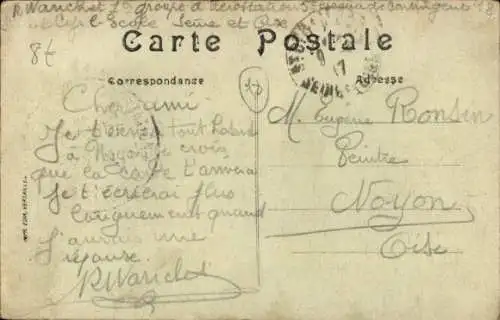 R Warichet 1er groupe d'aérostation
St Cyr l'École Seine et Oise
8f
Carte Postale
Correspondance
Adresse
17
Cher ami
Je t'écris tout
à Noyon je crois
que la carte t'arrivera
Je t'écrirai plus
longuement quand
J'aurais une
réponse
RWarichet
M. Eugene Ronsin
Peintre
Noyon
Oise